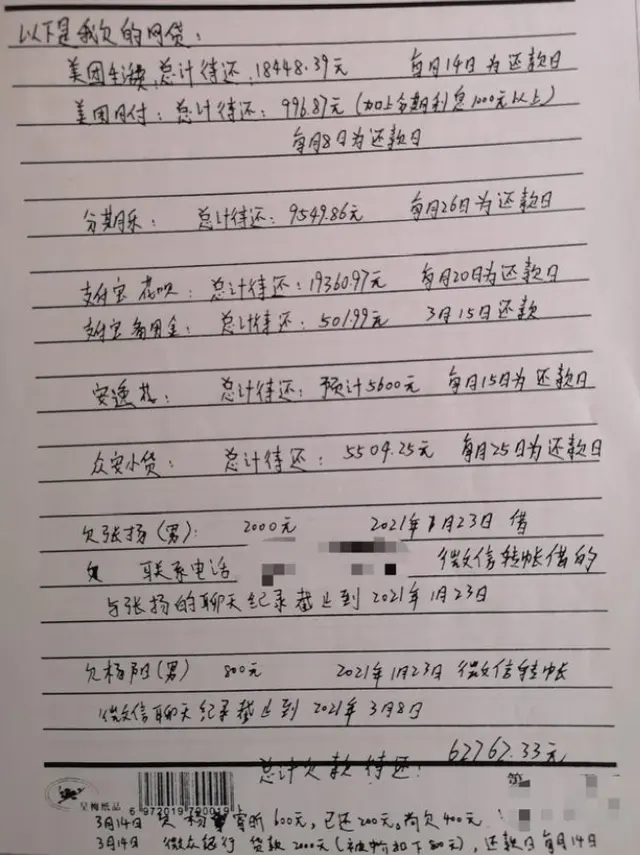 以下是我欠的网贷：
美团生活费，总计待还：18448.39元 每月14日为还款日
美团月付：总计待还：996.87元（加上分期利息1000元以上）
每月8日为还款日
分期乐： 总计待还：9549.86元 每月26日为还款日
支付宝花呗：总计待还：19360.97元 每月20日为还款日
支付宝备用金：总计待还：501.99元 3月15日还款
安逸花： 总计待还：预计5600元 每月15日为还款日
众安小贷： 总计待还：5504.25元 每月25日为还款日
欠张扬（男）： 2000元 2021年1月23日借
联系电话 微信转帐借的
与张扬的聊天纪录截止到2021年1月23日
欠杨阳（男） 800元 2021年1月23日 微信转帐
微信聊天纪录截止到2021年3月8日
总计欠款待还： 62762.33元
呈梅纸品 6 972019 790019 第
3月14日 欠杨 600元，已还200元。尚欠400元
3月14日 微众银行 贷款2000元（ 800元），还款日每月14日